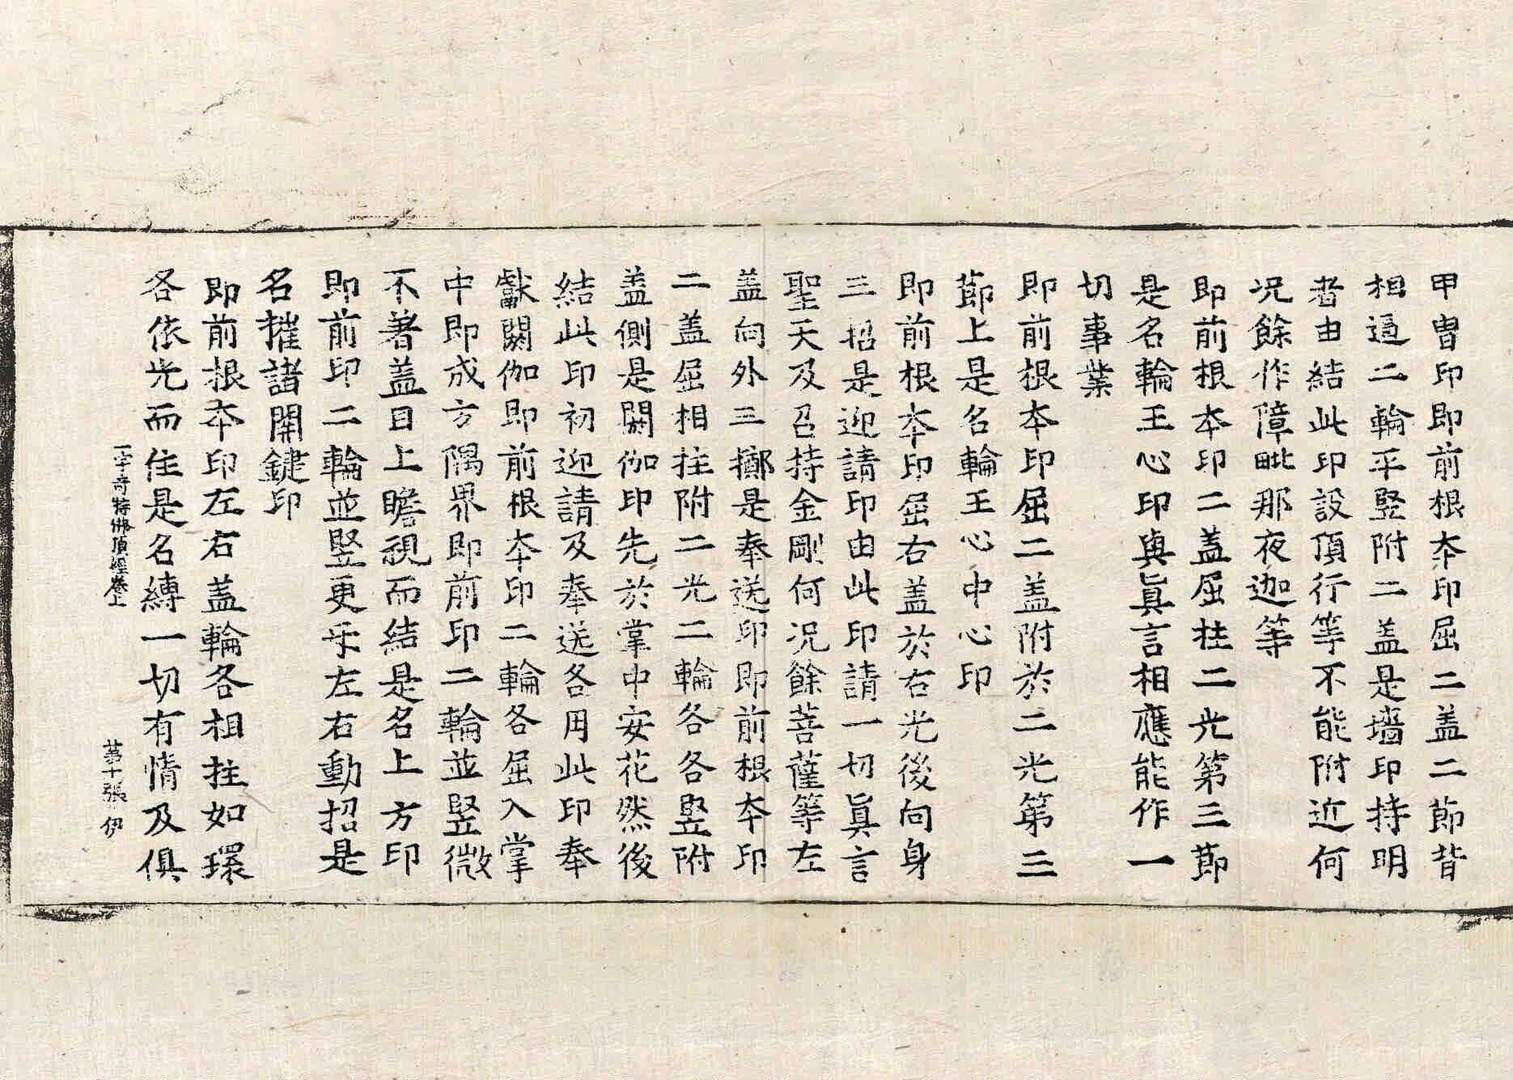 甲冑印即前根本印屈二盖二節背
相逼二輪平竪附二盖是墻印持明
者由結此印設頂行等不能附近何
况餘作障毗那夜迦等
即前根本印二盖屈拄二光第三節
是名輪王心印與眞言相應能作一
切事業
即前根本印屈二盖附於二光第三
節上是名輪王心中心印
即前根本印屈右盖於右光後向身
三招是迎請印由此印請一切眞言
聖天及召持金剛何况餘菩薩等左
盖向外三擲是奉送印即前根本印
二盖屈相拄附二光二輪各各竪附
盖側是閼伽印先於掌中安花然後
結此印初迎請及奉送各用此印奉
獻閼伽即前根本印二輪各屈入掌
中即成方隅界即前印二輪並竪微
不著盖目上瞻視而結是名上方印
即前印二輪並竪更互左右動招是
名摧諸開鍵印
即前根本印左右盖輪各相拄如環
各依光而住是名縛一切有情及俱
一字奇特佛頂經卷上 第十張 伊